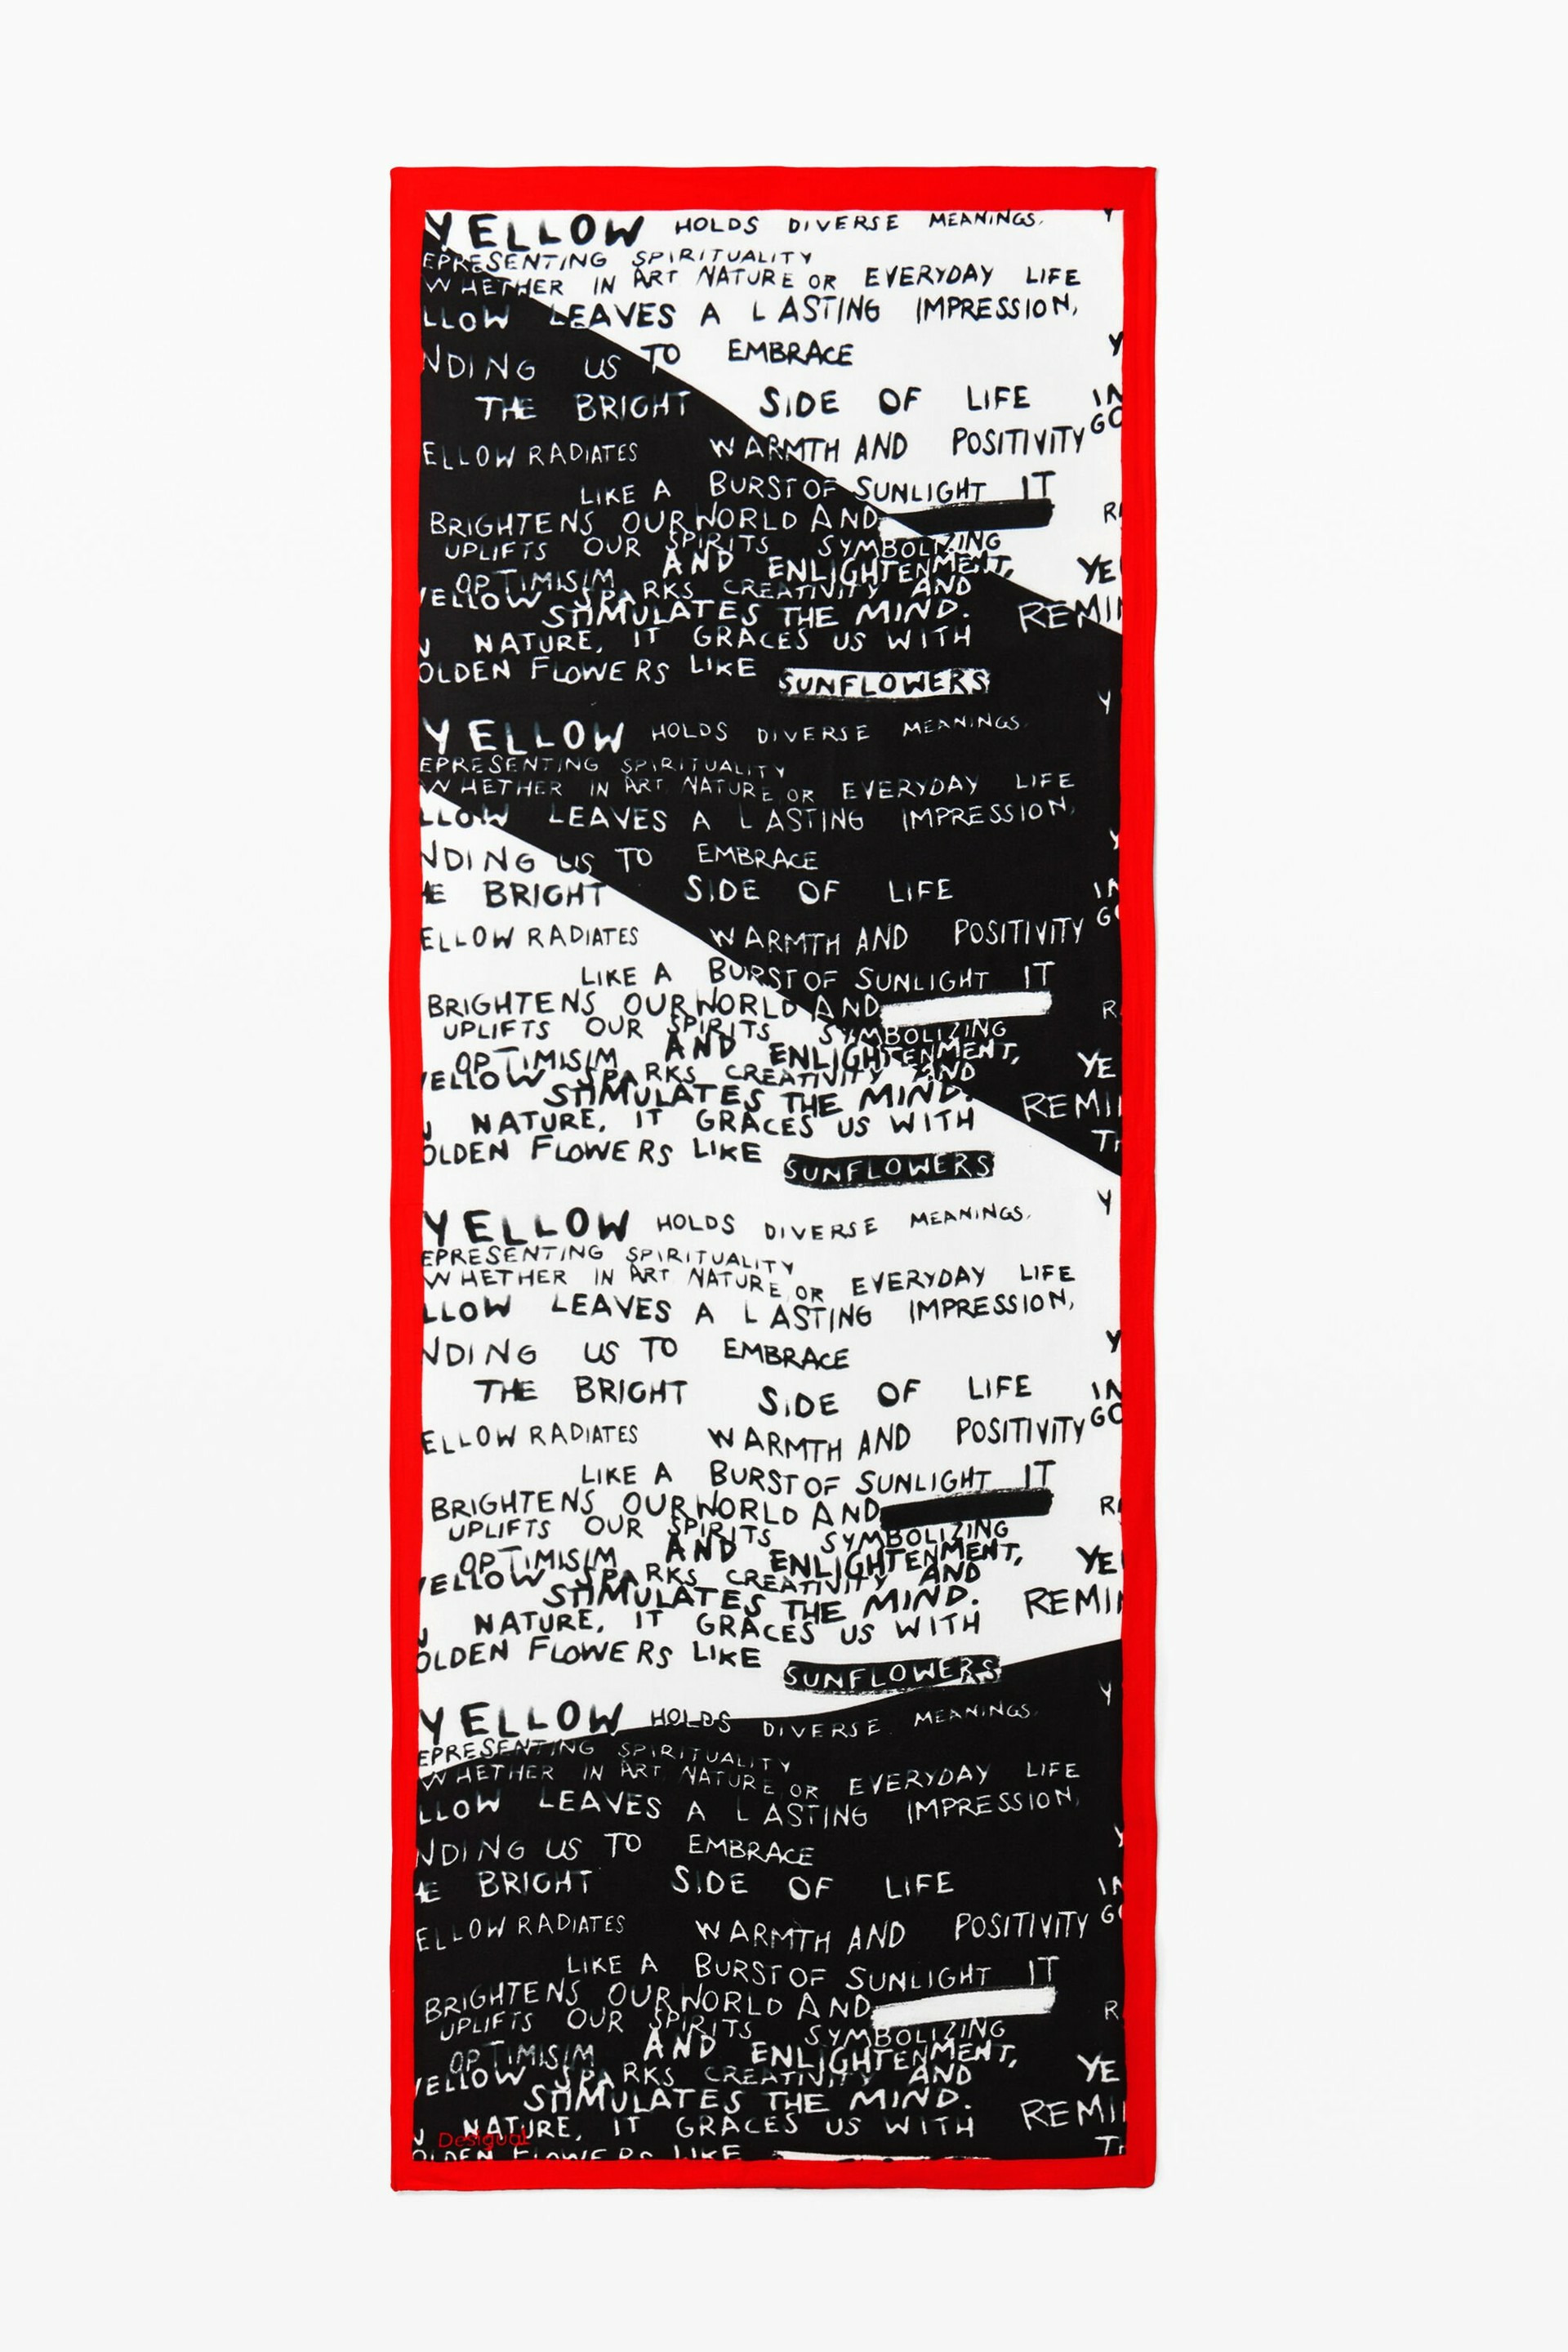 YELLOW HOLDS DIVERSE MEANINGS. Y
EPRESENTING SPIRITUALITY
WHETHER IN ART NATURE OR EVERYDAY LIFE
LLOW LEAVES A LASTING IMPRESSION,
NDING US TO EMBRACE Y
THE BRIGHT SIDE OF LIFE IN
GO
ELLOW RADIATES WARMTH AND POSITIVITY
LIKE A BURST OF SUNLIGHT IT
BRIGHTENS OUR WORLD AND R
UPLIFTS OUR SPIRITS SYMBOLIZING
OPTIMISIM AND ENLIGHTENMENT, YE
YELLOW SPARKS CREATIVITY AND
STIMULATES THE MIND. REMI
N NATURE, IT GRACES US WITH
OLDEN FLOWERS LIKE SUNFLOWERS
Y
YELLOW HOLDS DIVERSE MEANINGS.
EPRESENTING SPIRITUALITY
WHETHER IN ART NATURE OR EVERYDAY LIFE
LLOW LEAVES A LASTING IMPRESSION,
Y
NDING US TO EMBRACE
HE BRIGHT SIDE OF LIFE IN
GO
ELLOW RADIATES WARMTH AND POSITIVITY
LIKE A BURST OF SUNLIGHT IT
BRIGHTENS OUR WORLD AND R
UPLIFTS OUR SPIRITS SYMBOLIZING
OPTIMISIM AND ENLIGHTENMENT, YE
YELLOW SPARKS CREATIVITY AND
STIMULATES THE MIND. REMI
N NATURE, IT GRACES US WITH TH
OLDEN FLOWERS LIKE SUNFLOWERS
Y
YELLOW HOLDS DIVERSE MEANINGS.
EPRESENTING SPIRITUALITY
WHETHER IN ART NATURE OR EVERYDAY LIFE
LLOW LEAVES A LASTING IMPRESSION,
NDING US TO EMBRACE Y
THE BRIGHT SIDE OF LIFE IN
GO
ELLOW RADIATES WARMTH AND POSITIVITY
LIKE A BURST OF SUNLIGHT IT
BRIGHTENS OUR WORLD AND R
UPLIFTS OUR SPIRITS SYMBOLIZING
OPTIMISIM AND ENLIGHTENMENT, YE
YELLOW SPARKS CREATIVITY AND
STIMULATES THE MIND. REMI
N NATURE, IT GRACES US WITH
OLDEN FLOWERS LIKE SUNFLOWERS
Y
YELLOW HOLDS DIVERSE MEANINGS.
EPRESENTING SPIRITUALITY
WHETHER IN ART NATURE OR EVERYDAY LIFE
LLOW LEAVES A LASTING IMPRESSION,
NDING US TO EMBRACE Y
HE BRIGHT SIDE OF LIFE IN
GO
ELLOW RADIATES WARMTH AND POSITIVITY
LIKE A BURST OF SUNLIGHT IT
BRIGHTENS OUR WORLD AND R
UPLIFTS OUR SPIRITS SYMBOLIZING
OPTIMISIM AND ENLIGHTENMENT, YE
YELLOW SPARKS CREATIVITY AND
STIMULATES THE MIND. REMI
N NATURE, IT GRACES US WITH
Desigual
OLDEN FLOWERS LIKE TH